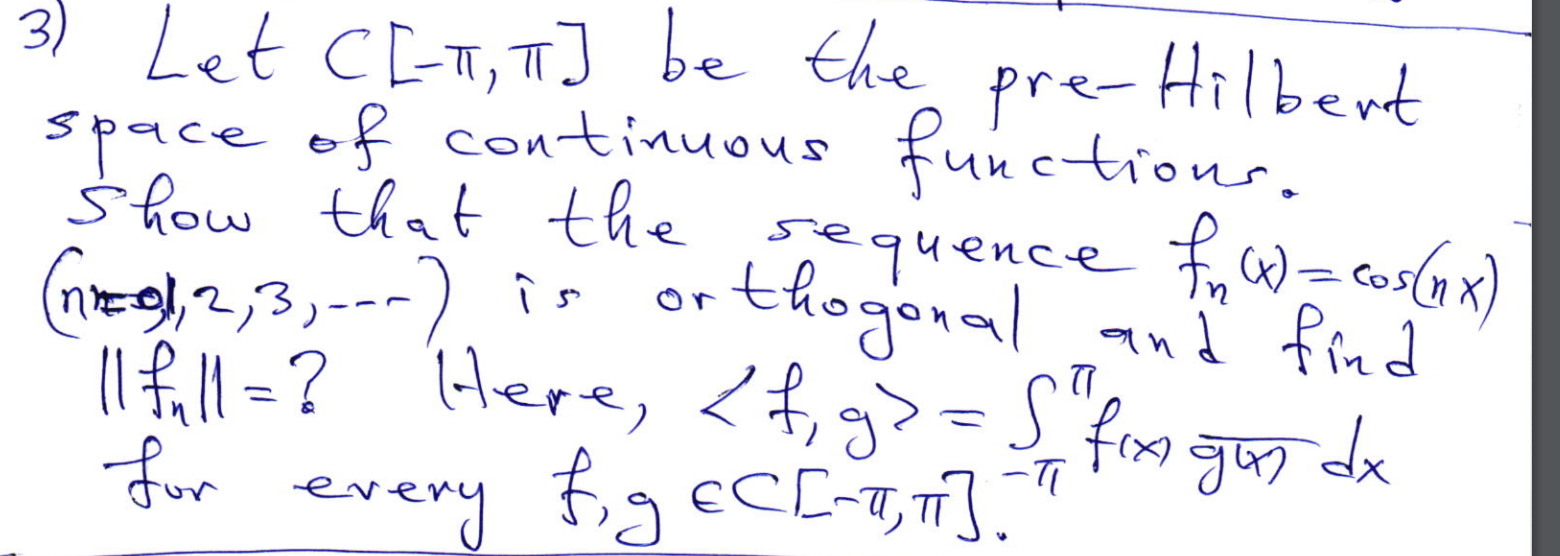 3) Let C[-π, π] be the pre-Hilbert
space of continuous functions.
Show that the sequence fₙ(x) = cos(nx)
(n=1,2,3,---) is orthogonal and find
||fₙ|| = ? Here, <f, g> = ∫_{-π}^{π} f(x) \overline{g(x)} dx
for every f, g ∈ C[-π, π].